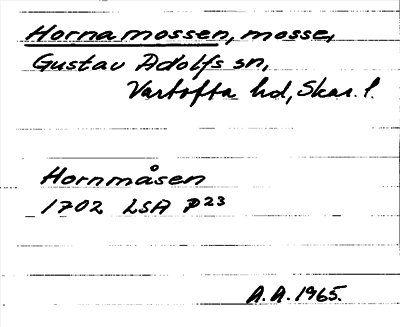 Hornamossen, mosse,
Gustav Adolfs sn,
Vartofta hd, Skar. l.
Hornmåsen
1702 LSA P²³
A.A. 1965.